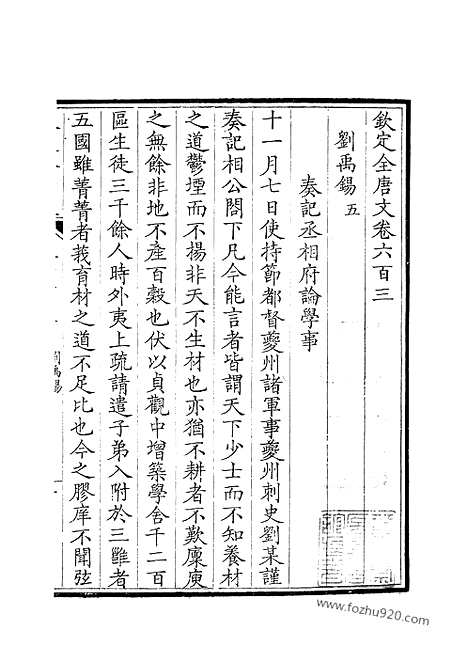 欽定全唐文卷六百三
劉禹錫 五
奏記丞相府論學事
十一月七日使持節都督夔州諸軍事夔州刺史劉某謹
奏記相公閣下凡今能言者皆謂天下少士而不知養材
之道鬱堙而不揚非天不生材也亦猶不耕者不歎廩庾
之無餘非地不產百穀也伏以貞觀中增築學舍千二百
區生徒三千餘人時外夷上疏請遣子弟入附於三雝者
五國雖菁菁者莪育材之道不足比也今之膠庠不聞弦
www.fozhu920.com